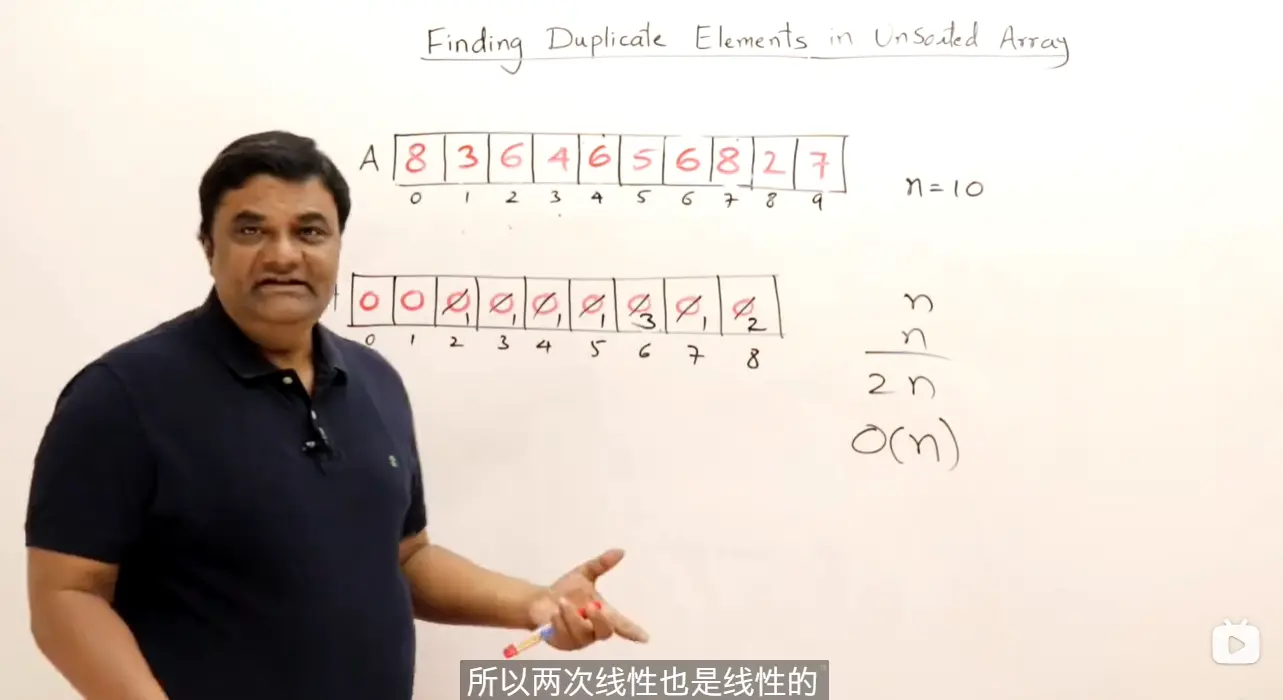 Finding Duplicate Elements in Unsorted Array
A 8 3 6 4 6 5 6 8 2 7
0 1 2 3 4 5 6 7 8 9
n=10
0 0 0 0 0 0 0 0 0
1 1 1 1 3 1 2
0 1 2 3 4 5 6 7 8
n
n
2n
O(n)
所以两次线性也是线性的